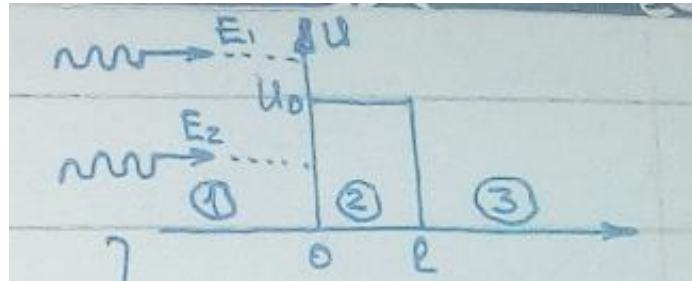 E1 U
U0
E2
1 2 3
0 l